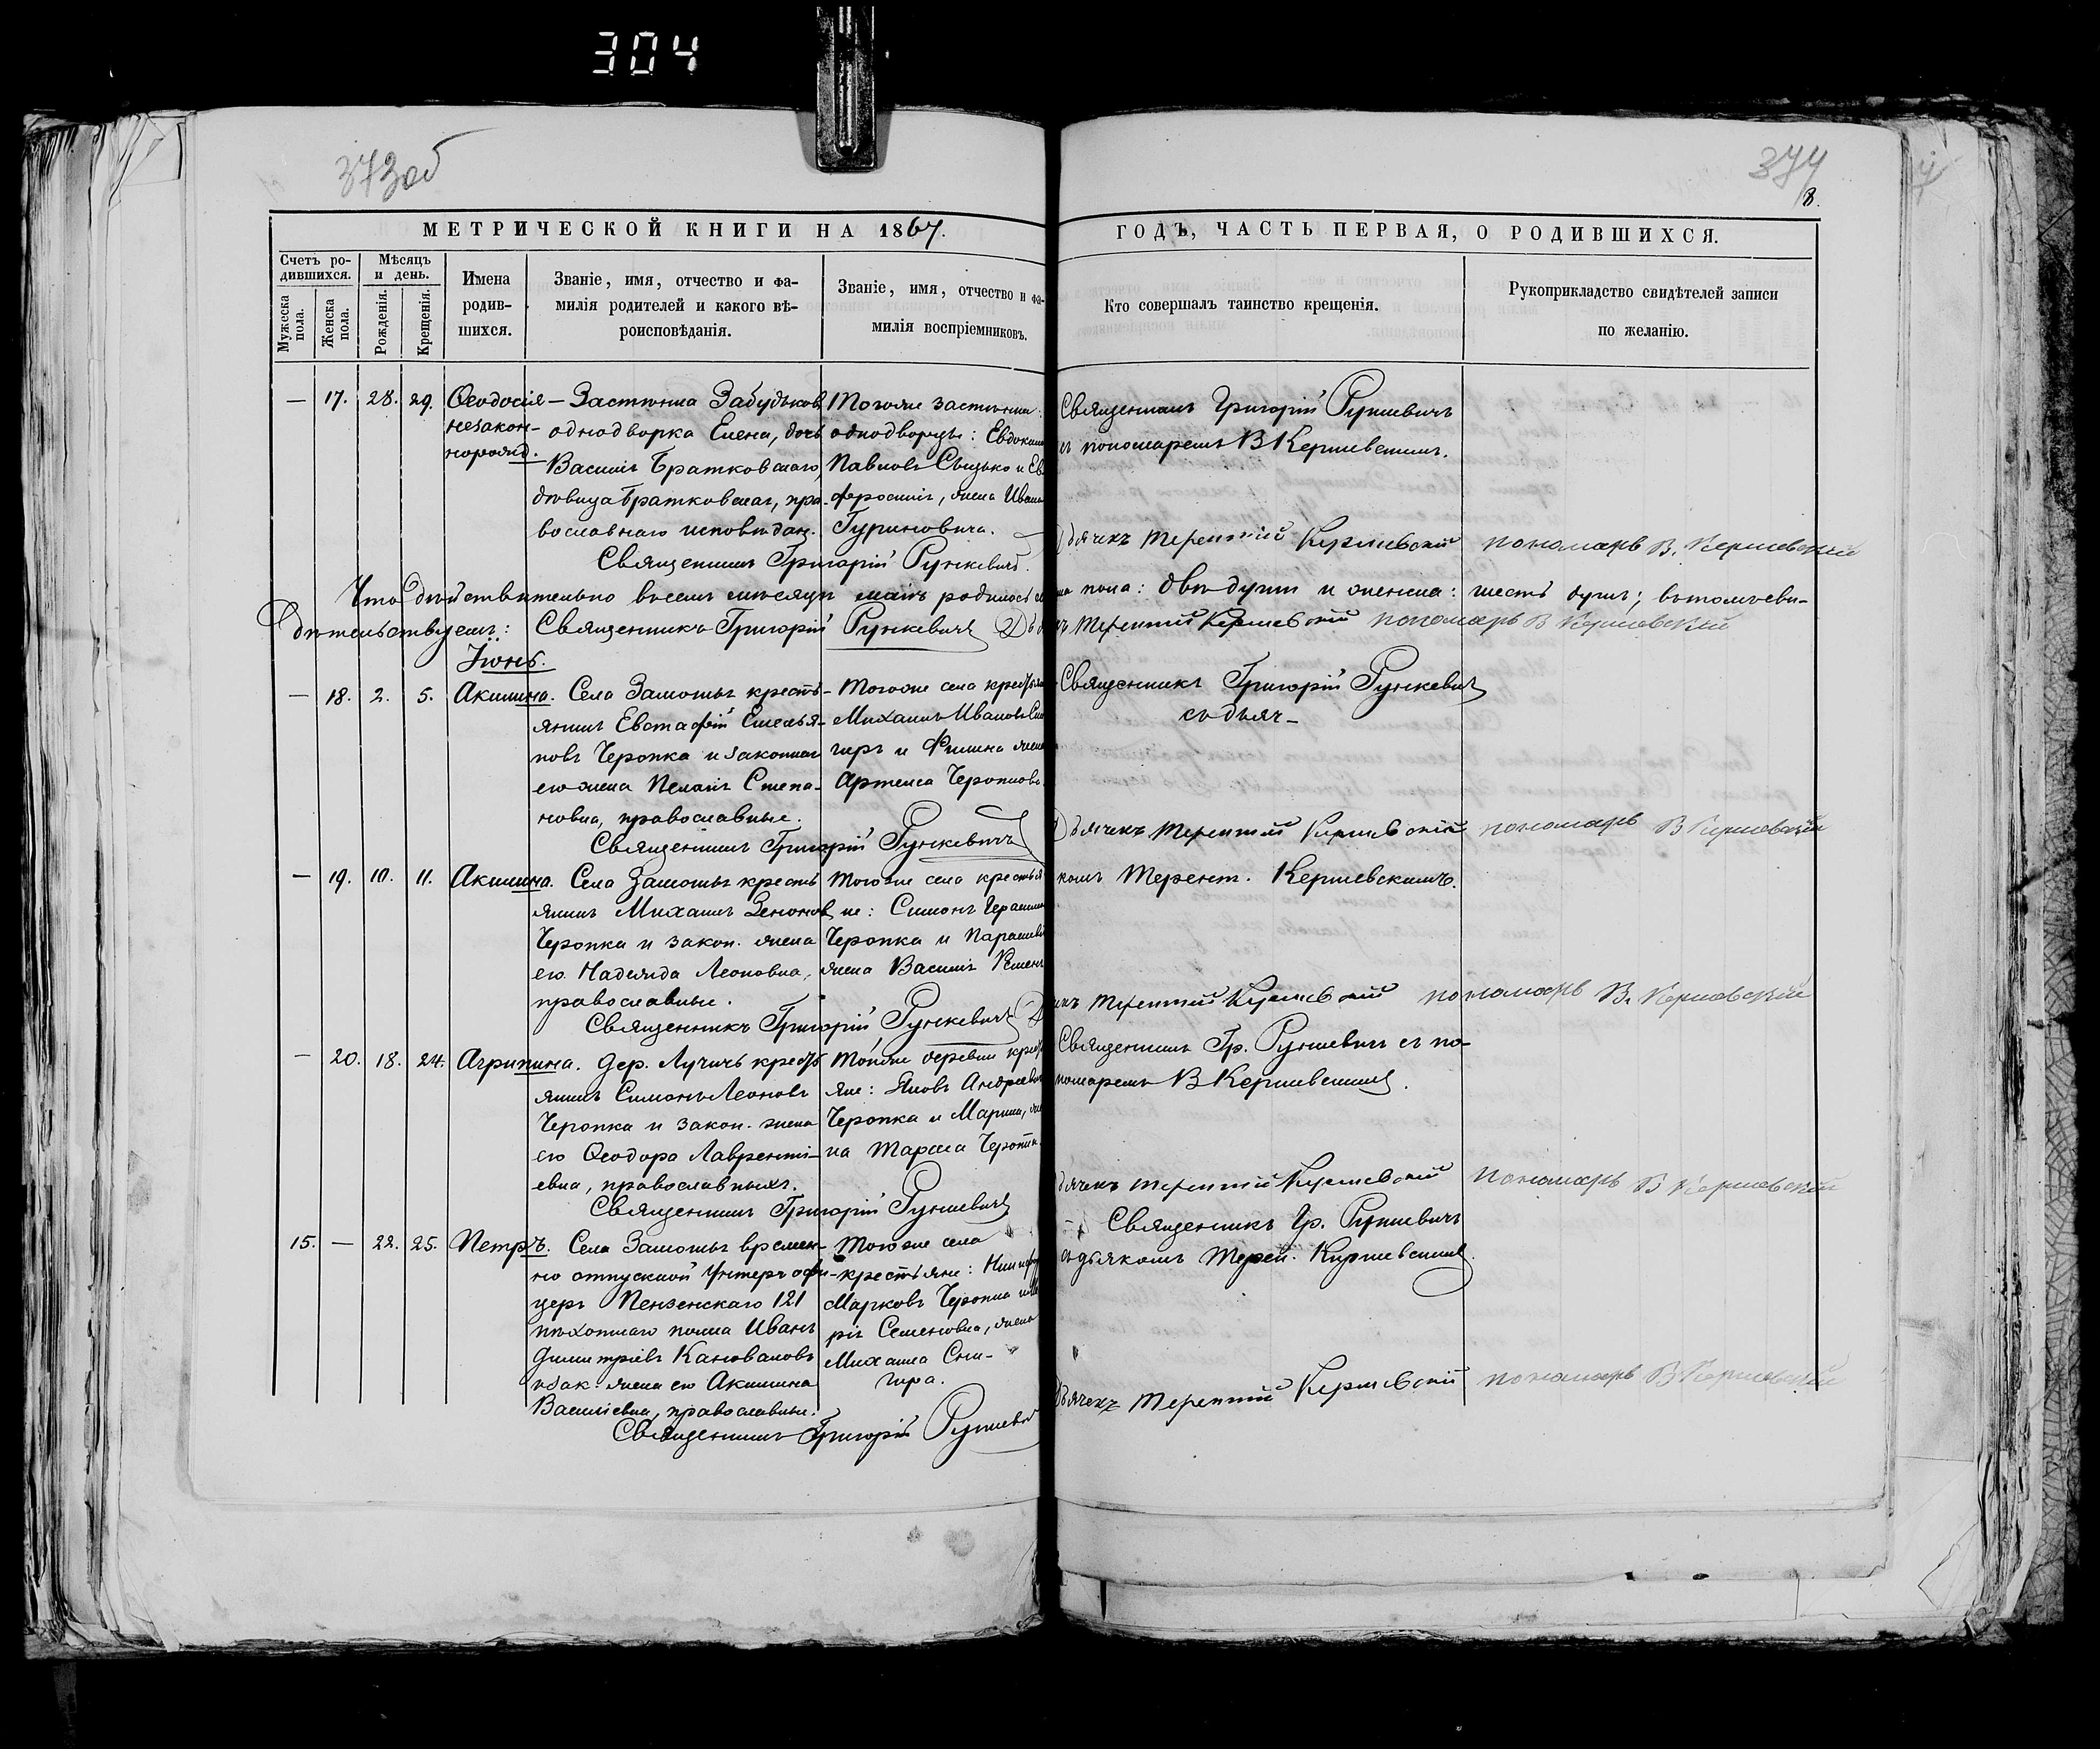 304
373об
374
8.
МЕТРИЧЕСКОЙ КНИГИ НА 1867.
ГОДЪ, ЧАСТЬ ПЕРВАЯ, О РОДИВШИХСЯ.
Счетъ ро-
дившихся.
Мужеска пола.
Женска пола.
Мѣсяцъ
и день.
Рожденія.
Крещенія.
Имена
родив-
шихся.
Званіе, имя, отчество и фа-
милія родителей и какого вѣ-
роисповѣданія.
Званіе, имя, отчество и фа-
милія воспріемниковъ.
Кто совершалъ таинство крещенія.
Рукоприкладство свидѣтелей записи
по желанію.
— 17. 28. 29. Ѳеодосія
незакон-
норожд.
Застѣнка
однодворка Елена, дочь
Василія Братковскаго,
Братковская, пра-
вославнаго исповѣдан.
Священникъ Григорій Рункевичъ.
Тогоже застѣнка
однодворцы: Евдоким
Павловъ и Ев-
фросинія, жена Ивана
Гуриновича.
Священникъ Григорій Рункевичъ
съ пономаремъ В Керножевскимъ.
Дьячекъ Терентій
пономарь В.
Что дѣйствительно въ семъ мѣсяцѣ маѣ родилось
пола: двѣ души и женска: шесть душъ; въ томъ сви-
дѣтельствуемъ: Священникъ Григорій Рункевичъ
Терентій пономарь В
Іюнь.
— 18. 2. 5. Акилина.
Села Замошья кресть-
янинъ Евстафій Емелья-
новъ Черопка и законная
его жена Пелагія Степа-
новна, православные.
Священникъ Григорій Рункевичъ
Тогоже села крестьяне
Михаилъ Ивановъ Сни-
гиръ и жена
Артема Черопкова.
Священникъ Григорій Рункевичъ
съ дьяч-
Дьячекъ Терентій
пономарь В
— 19. 10. 11. Акилина.
Села Замошья кресть-
янинъ Михаилъ Зеноновъ
Черопка и закон. жена
его Надежда Леоновна,
православные.
Священникъ Григорій Рункевичъ
Тогоже села крестья-
не: Симонъ
Черопка и Параскева
жена Василія
комъ Терент.
Терентій
пономарь В.
— 20. 18. 24. Агрипина.
Дер. Лучичъ кресть-
янинъ Симонъ Леоновъ
Черопка и закон. жена
его Ѳеодора Лавренті-
евна, православныхъ.
Священникъ Григорій Рункевичъ
Тойже деревни кресть-
яне: Яковъ Андреевъ
Черопка и Марина, же-
на Тараса Черопка
Священникъ Гр. Рункевичъ съ по-
номаремъ В
дячекъ Терентій
пономарь В
15. — 22. 25. Петръ.
Села Замошья времен-
но отпускной Унтеръ офи-
церъ Пензенскаго 121
пѣхотнаго полка Иванъ
Димитріевъ Кановаловъ
и зак. жена его Акилина
Василіевна, православные.
Священникъ Григорій Рункевичъ
Тогоже села
крестьяне:
Марковъ Черопка и Ма-
рія Семеновна, жена
Михаила Сни-
гира.
Священникъ Гр. Рункевичъ
съ дьякомъ Терен.
Дьячекъ Терентій
пономарь В